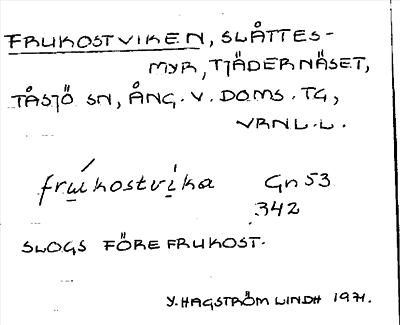 FRUKOSTVIKEN, SLÅTTES-
MYR, TJÄDERNÄSET,
TÅSJÖ SN, ÅNG. V. DOMS. TG,
VRNL.L.
frúkostvika Gn 53
342
SLOGS FÖRE FRUKOST.
Y. HAGSTRÖM LINDH 1971.